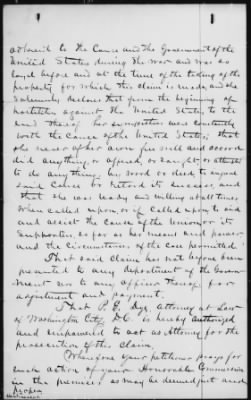 adhered to the Cause and the Government of the
United States during the war and was as
loyal before and at the time of the taking of the
property for which this claim is made, and she
solemnly declares that from the beginning of
hostilities against the United States, to the
end thereof her sympathies were constantly
with the Cause of the United States; that
she never of her own free will and accord
did anything, or offered, or sought, or attempted
to do anything by word or deed to injure
said Cause or retard its success, and
that she was ready and willing at all times
when called upon, or if called upon, to aid
and assist the Cause of the Union or its
Supporters, so far as her means and power
and the circumstances of the case permitted.
That said claim has not before been
presented to any department of the Govern-
ment nor to any officer thereof for
adjustment and payment.
That Attorney at Law
of Washington City, D.C. is hereby authorized
and empowered to act as Attorney for the
prosecution of the claim.
Wherefore your petitioner prays for
such action of your Honorable Commission
in the premises as may be deemed just and
proper